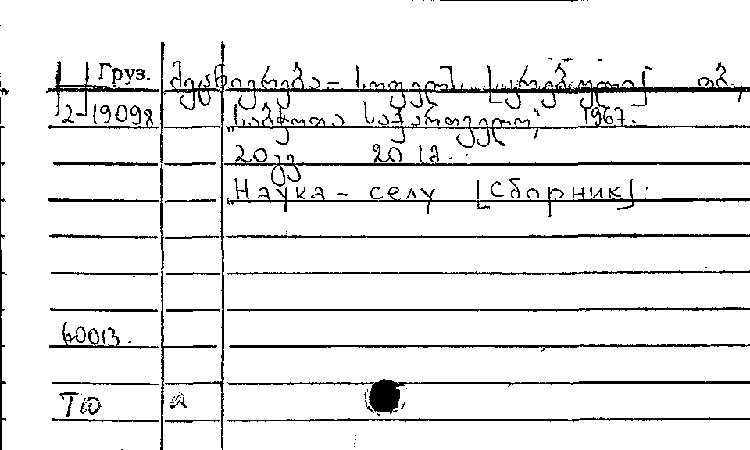 Груз. მეცნიერება — სოფელს. [კრებული] თბ.,
2-19098 „საბჭოთა საქართველო“, 1967.
20 გვ. 20 სმ.
Наука - селу [Сборник].
60013.
ТФ а